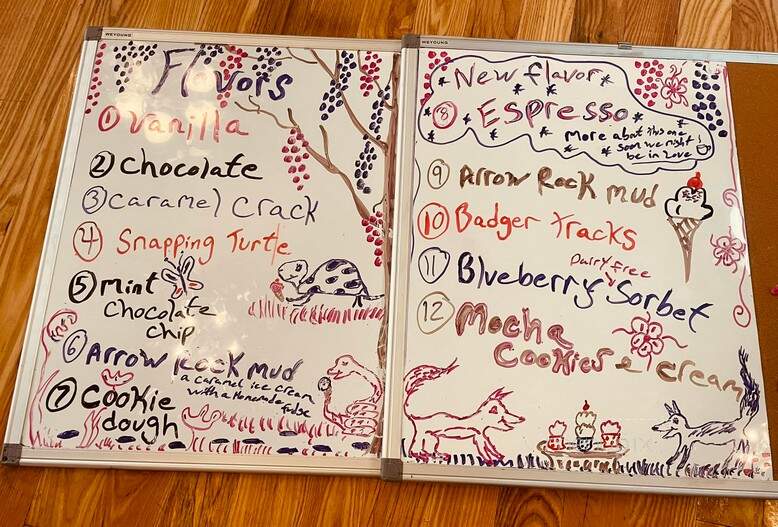 WEYOUNG
Flavors
1 Vanilla
2 Chocolate
3 Caramel Crack
4 Snapping Turtle
5 Mint
Chocolate
Chip
6 Arrow Rock mud
a caramel ice cream
with a Homemade
fudge
7 Cookie
dough
WEYOUNG
New flavor
8 Espresso
More about this one
soon we might
be in Love
9 Arrow Rock mud
10 Badger Tracks
Dairy free
11 Blueberry Sorbet
12 Mocha
Cookies e cream